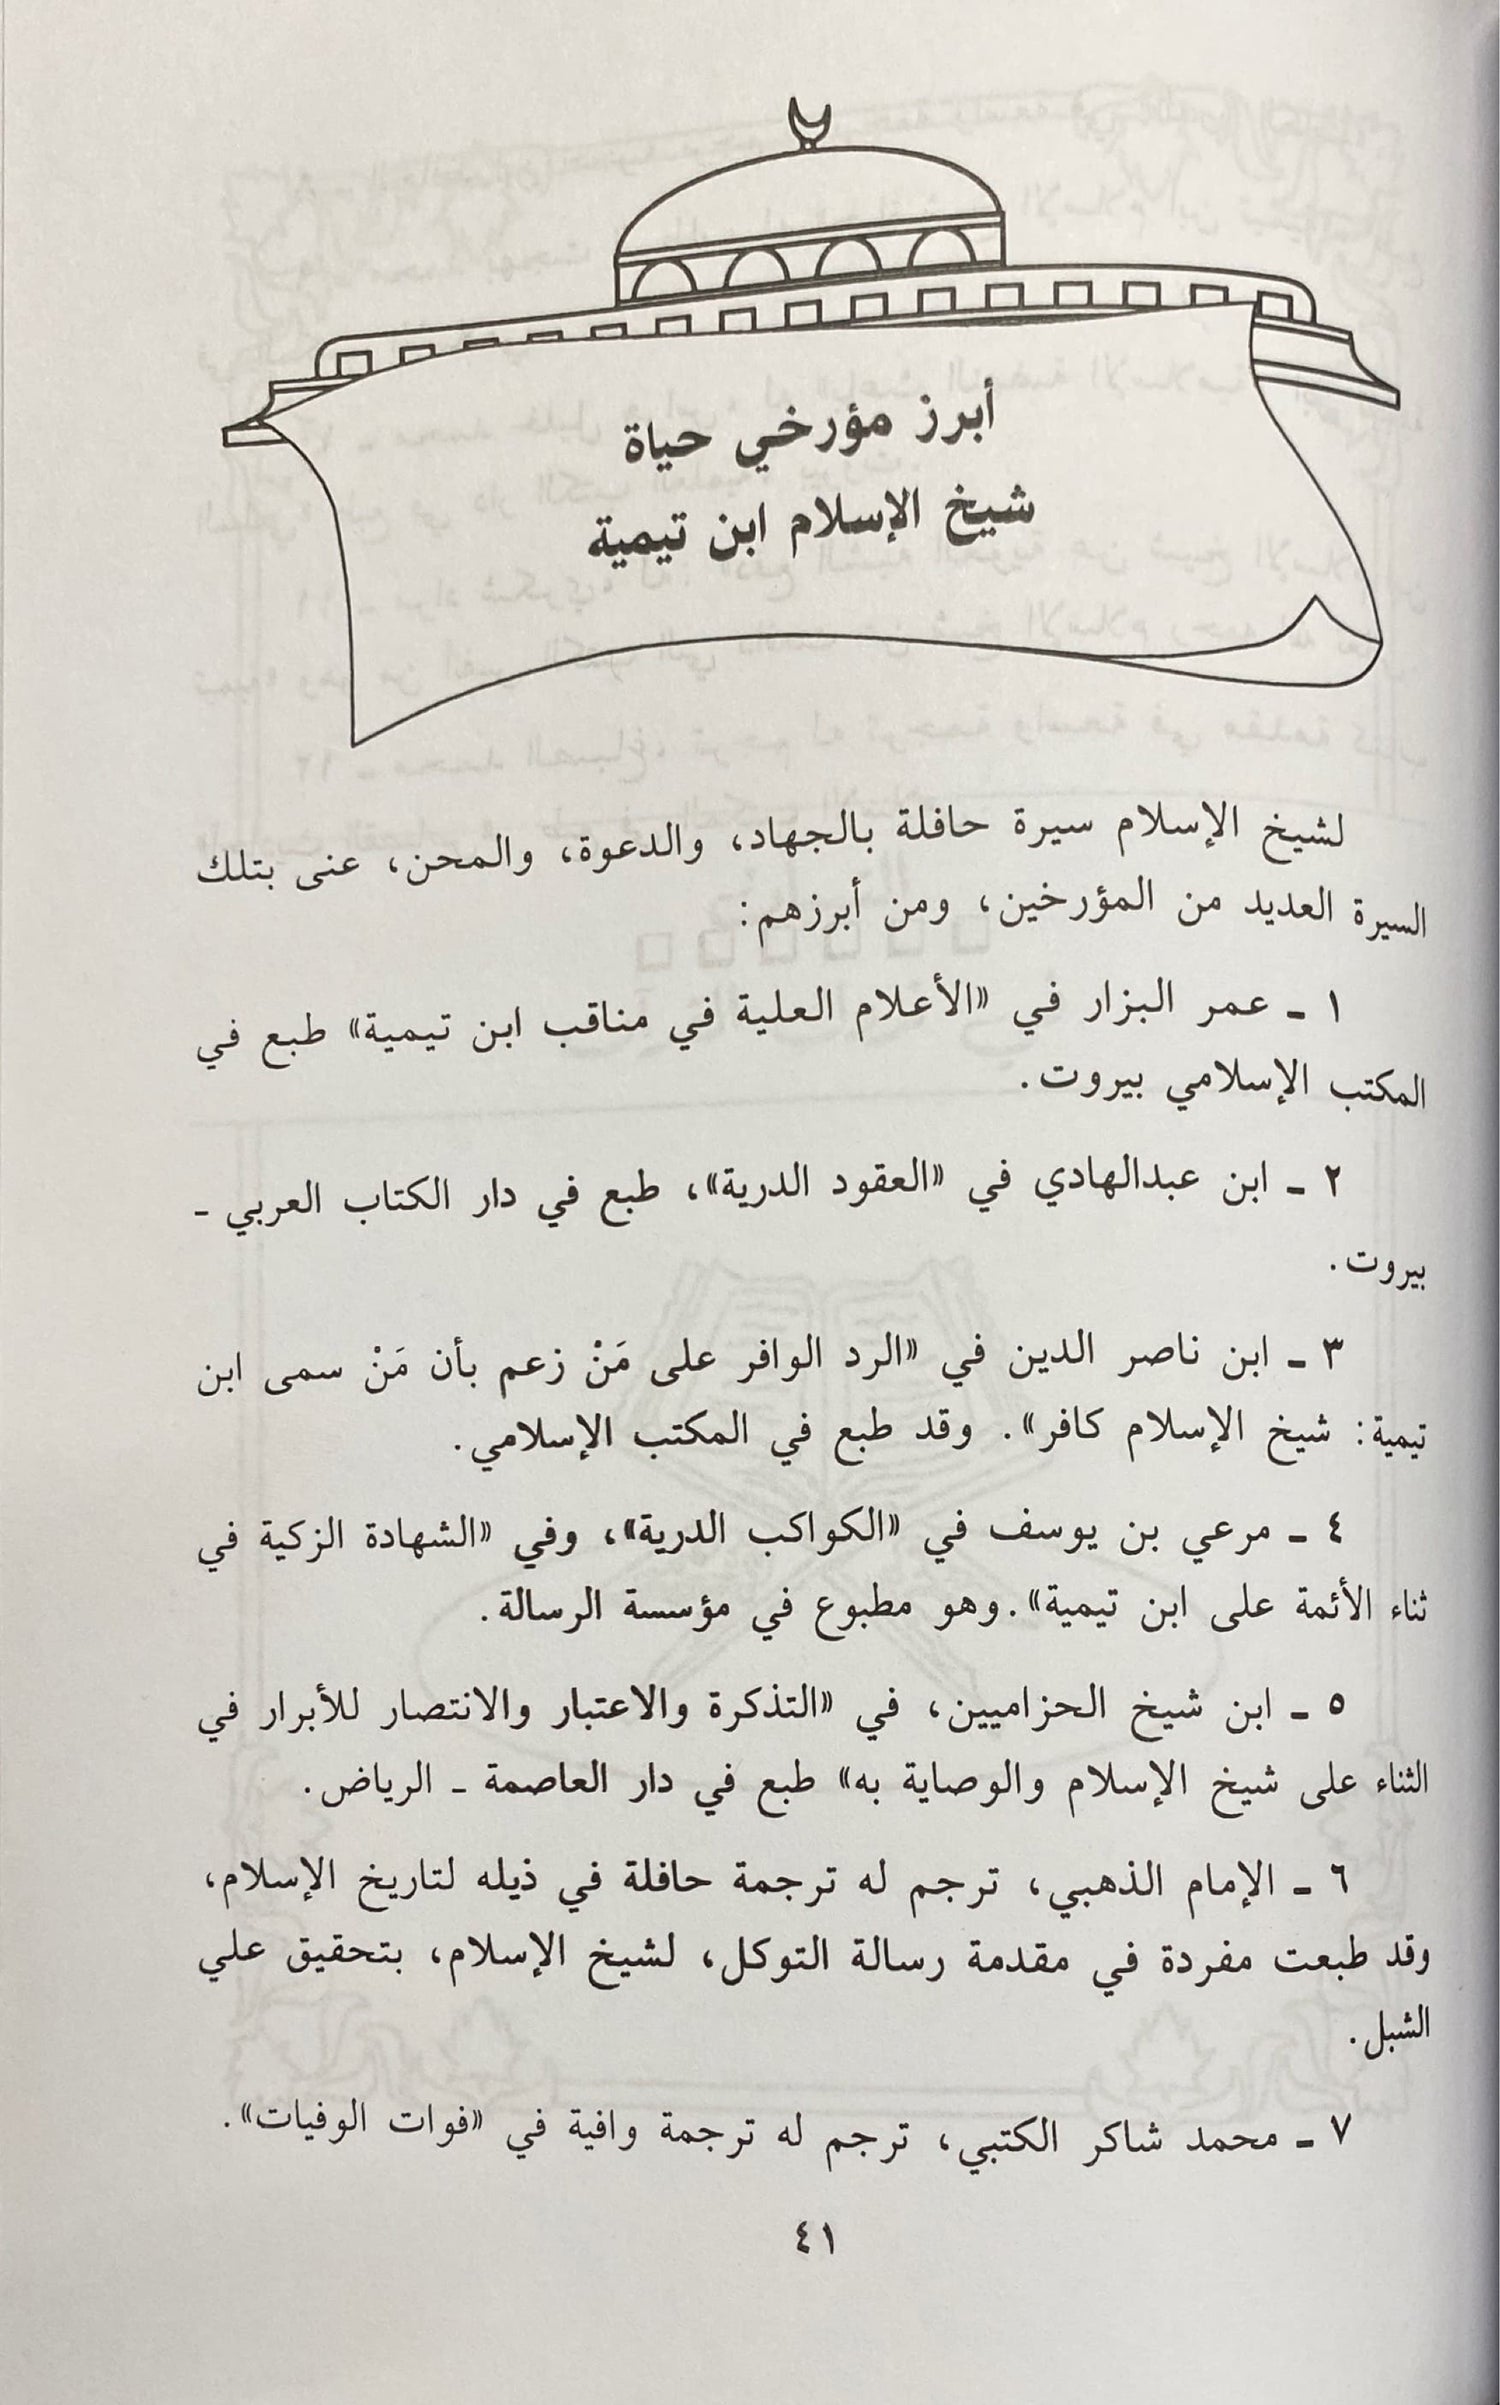 أبرز مؤرخي حياة
شيخ الإسلام ابن تيمية
لشيخ الإسلام سيرة حافلة بالجهاد، والدعوة، والمحن، عنى بتلك
السيرة العديد من المؤرخين، ومن أبرزهم:
١ ـ عمر البزار في «الأعلام العلية في مناقب ابن تيمية» طبع في
المكتب الإسلامي بيروت.
٢ ـ ابن عبدالهادي في «العقود الدرية»، طبع في دار الكتاب العربي -
بيروت.
٣ ـ ابن ناصر الدين في «الرد الوافر على مَنْ زعم بأن مَنْ سمى ابن
تيمية: شيخ الإسلام كافر». وقد طبع في المكتب الإسلامي.
٤ ـ مرعي بن يوسف في «الكواكب الدرية»، وفي «الشهادة الزكية في
ثناء الأئمة على ابن تيمية». وهو مطبوع في مؤسسة الرسالة.
٥ ـ ابن شيخ الحزاميين، في «التذكرة والاعتبار والانتصار للأبرار في
الثناء على شيخ الإسلام والوصاية به» طبع في دار العاصمة ـ الرياض.
٦ ـ الإمام الذهبي، ترجم له ترجمة حافلة في ذيله لتاريخ الإسلام،
وقد طبعت مفردة في مقدمة رسالة التوكل، لشيخ الإسلام، بتحقيق علي
الشبل.
٧ ـ محمد شاكر الكتبي، ترجم له ترجمة وافية في «فوات الوفيات».
٤١